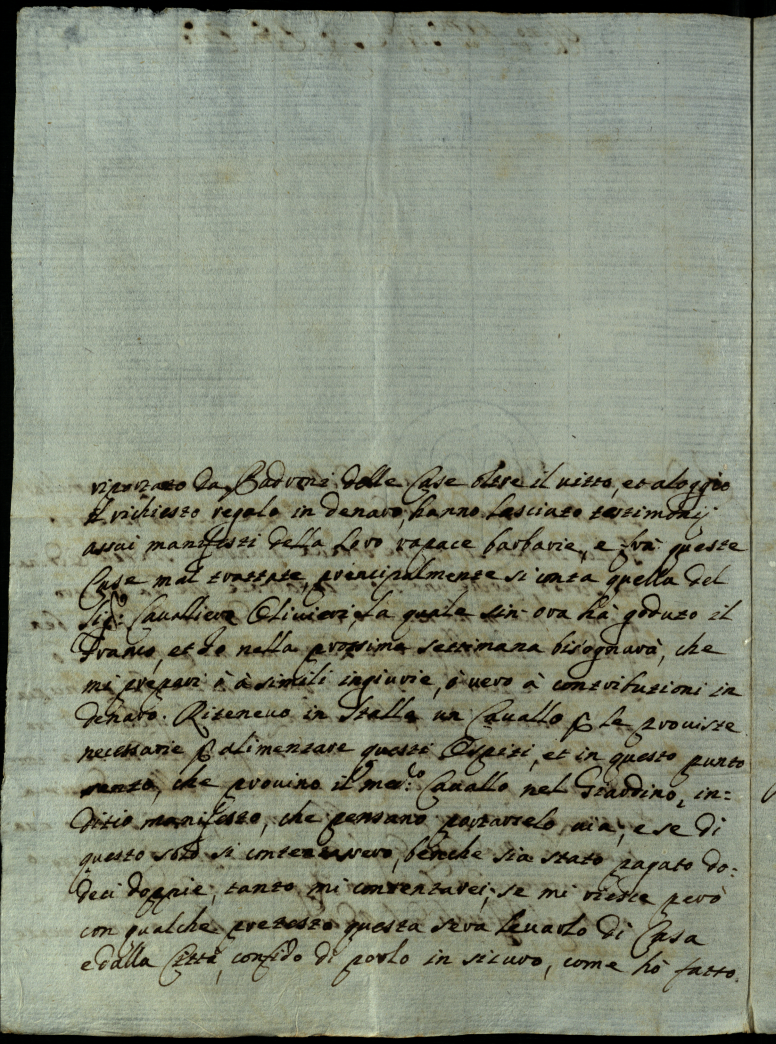 da Padroni delle Case oltre il vitto, et aloggio
il richiesto regalo in denaro, hanno lasciato testimonij
assai manifesti della loro rapace barbarie, e frà queste
Case mal trattate, principalmente si conta quella del
Sig.r Cavalliere Olivieri, la quale sin' ora hà goduto il
Franco, et Io nella prossima settimana bisognarà, che
mi prepari ò à simili ingiurie, ò vero à contributioni in
denaro. Ritenevo in Stalla un Cavallo p le proviste
necessarie p alimentare questi Ospiti, et in questo punto
sento, che provino il med.mo Cavallo nel Giardino, in=
ditio manifesto, che pensano portarselo via; e se di
questo solo si contentassero, benche sia stato pagato do=
deci doppie, tanto mi contentarei; se mi riesce però
con qualche pretesto questa sera levarlo di Casa
e dalla Città, confido di porlo in sicuro, come hò fatto